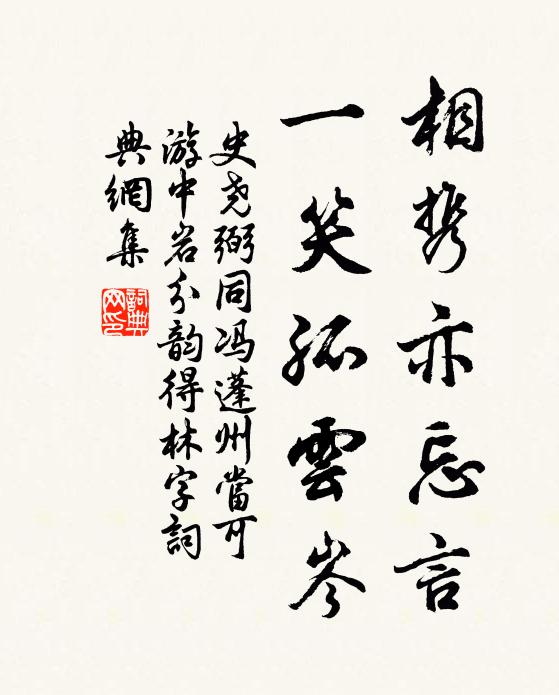 相携亦忘言
一笑孤雲岑
史尧弼同冯蓬州當可
游中岩分韵得林字詞
典網集
詞典网印